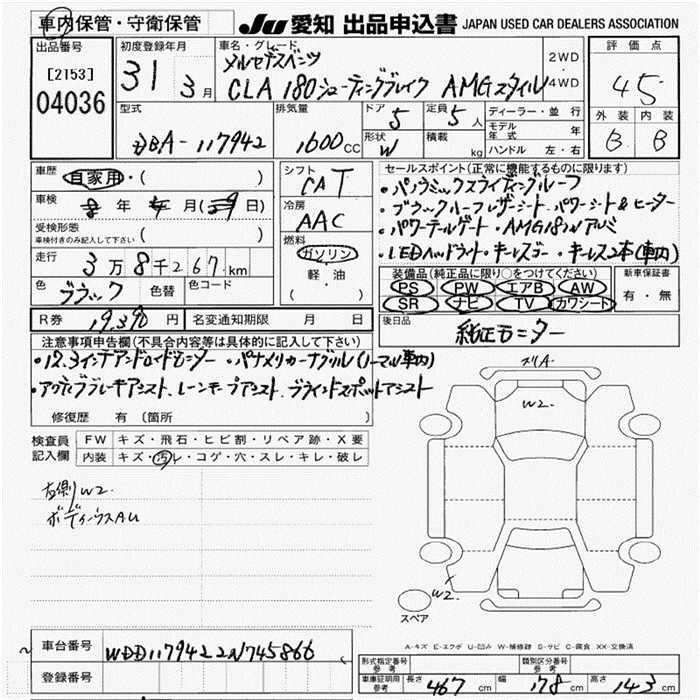 車内保管・守衛保管 JU 愛知 出品申込書 JAPAN USED CAR DEALERS ASSOCIATION
出品番号 初度登録年月 車名・グレード 評価点
[2153] 31 3月 メルセデスベンツ 2WD
04036 CLA 180 シューティングブレイク AMGスタイル 4WD 45
型式 排気量 ドア 5 定員 5人 ディーラー・並行 外装 内装
DBA-117942 1600CC 形状 W 積載 kg モデル年式 年 B B
ハンドル 左・右
車歴 自家用・( ) シフト CAT セールスポイント(正常に機能するものに限ります)
車検 年 月(29日) 冷房 AAC ・パノラミックスライディングルーフ
受検形態 車検付きのみ記入して下さい ( ) ・ブラックルーフレザーシート・パワーシート&ヒーター
燃料 ガソリン・軽・油( ) ・パワーテールゲート・AMG18インアルミ
走行 3万8千267km ・LEDヘッドライト・キーレスゴー・キーレス2本(車内)
色 ブラック 色替 色コード 装備品(純正品に限り○をつけてください) 新車保証書
PS PW エアB AW 有・無
SR ナビ TV カワシート
R券 19,390円 名変通知期限 月 日 後日品 純正モニター
注意事項申告欄(不具合内容等は具体的に記入して下さい)
・12.3インチアンドロイドモニター・パナメリカーナグリル(ノーマル車内)
・アクティブブレーキアシスト、レーンキープアシスト、ブラインドスポットアシスト
修復歴 有(箇所 )
検査員記入欄 FW キズ・飛石・ヒビ割・リペア跡・X要
内装 キズ・汚レ・コゲ・穴・スレ・キレ・破レ
左側W2.
ボディウスAU
W2.
W2.
スペア
A-キズ E-エクボ U-凹み W-補修跡 S-サビ C-腐食 XX-交換済
車台番号 WDD1179422N745866
登録番号
形式指定番号 参考 類別区分番号 参考
車庫証明用 参考 長さ 467cm 幅 178cm 高さ 143cm